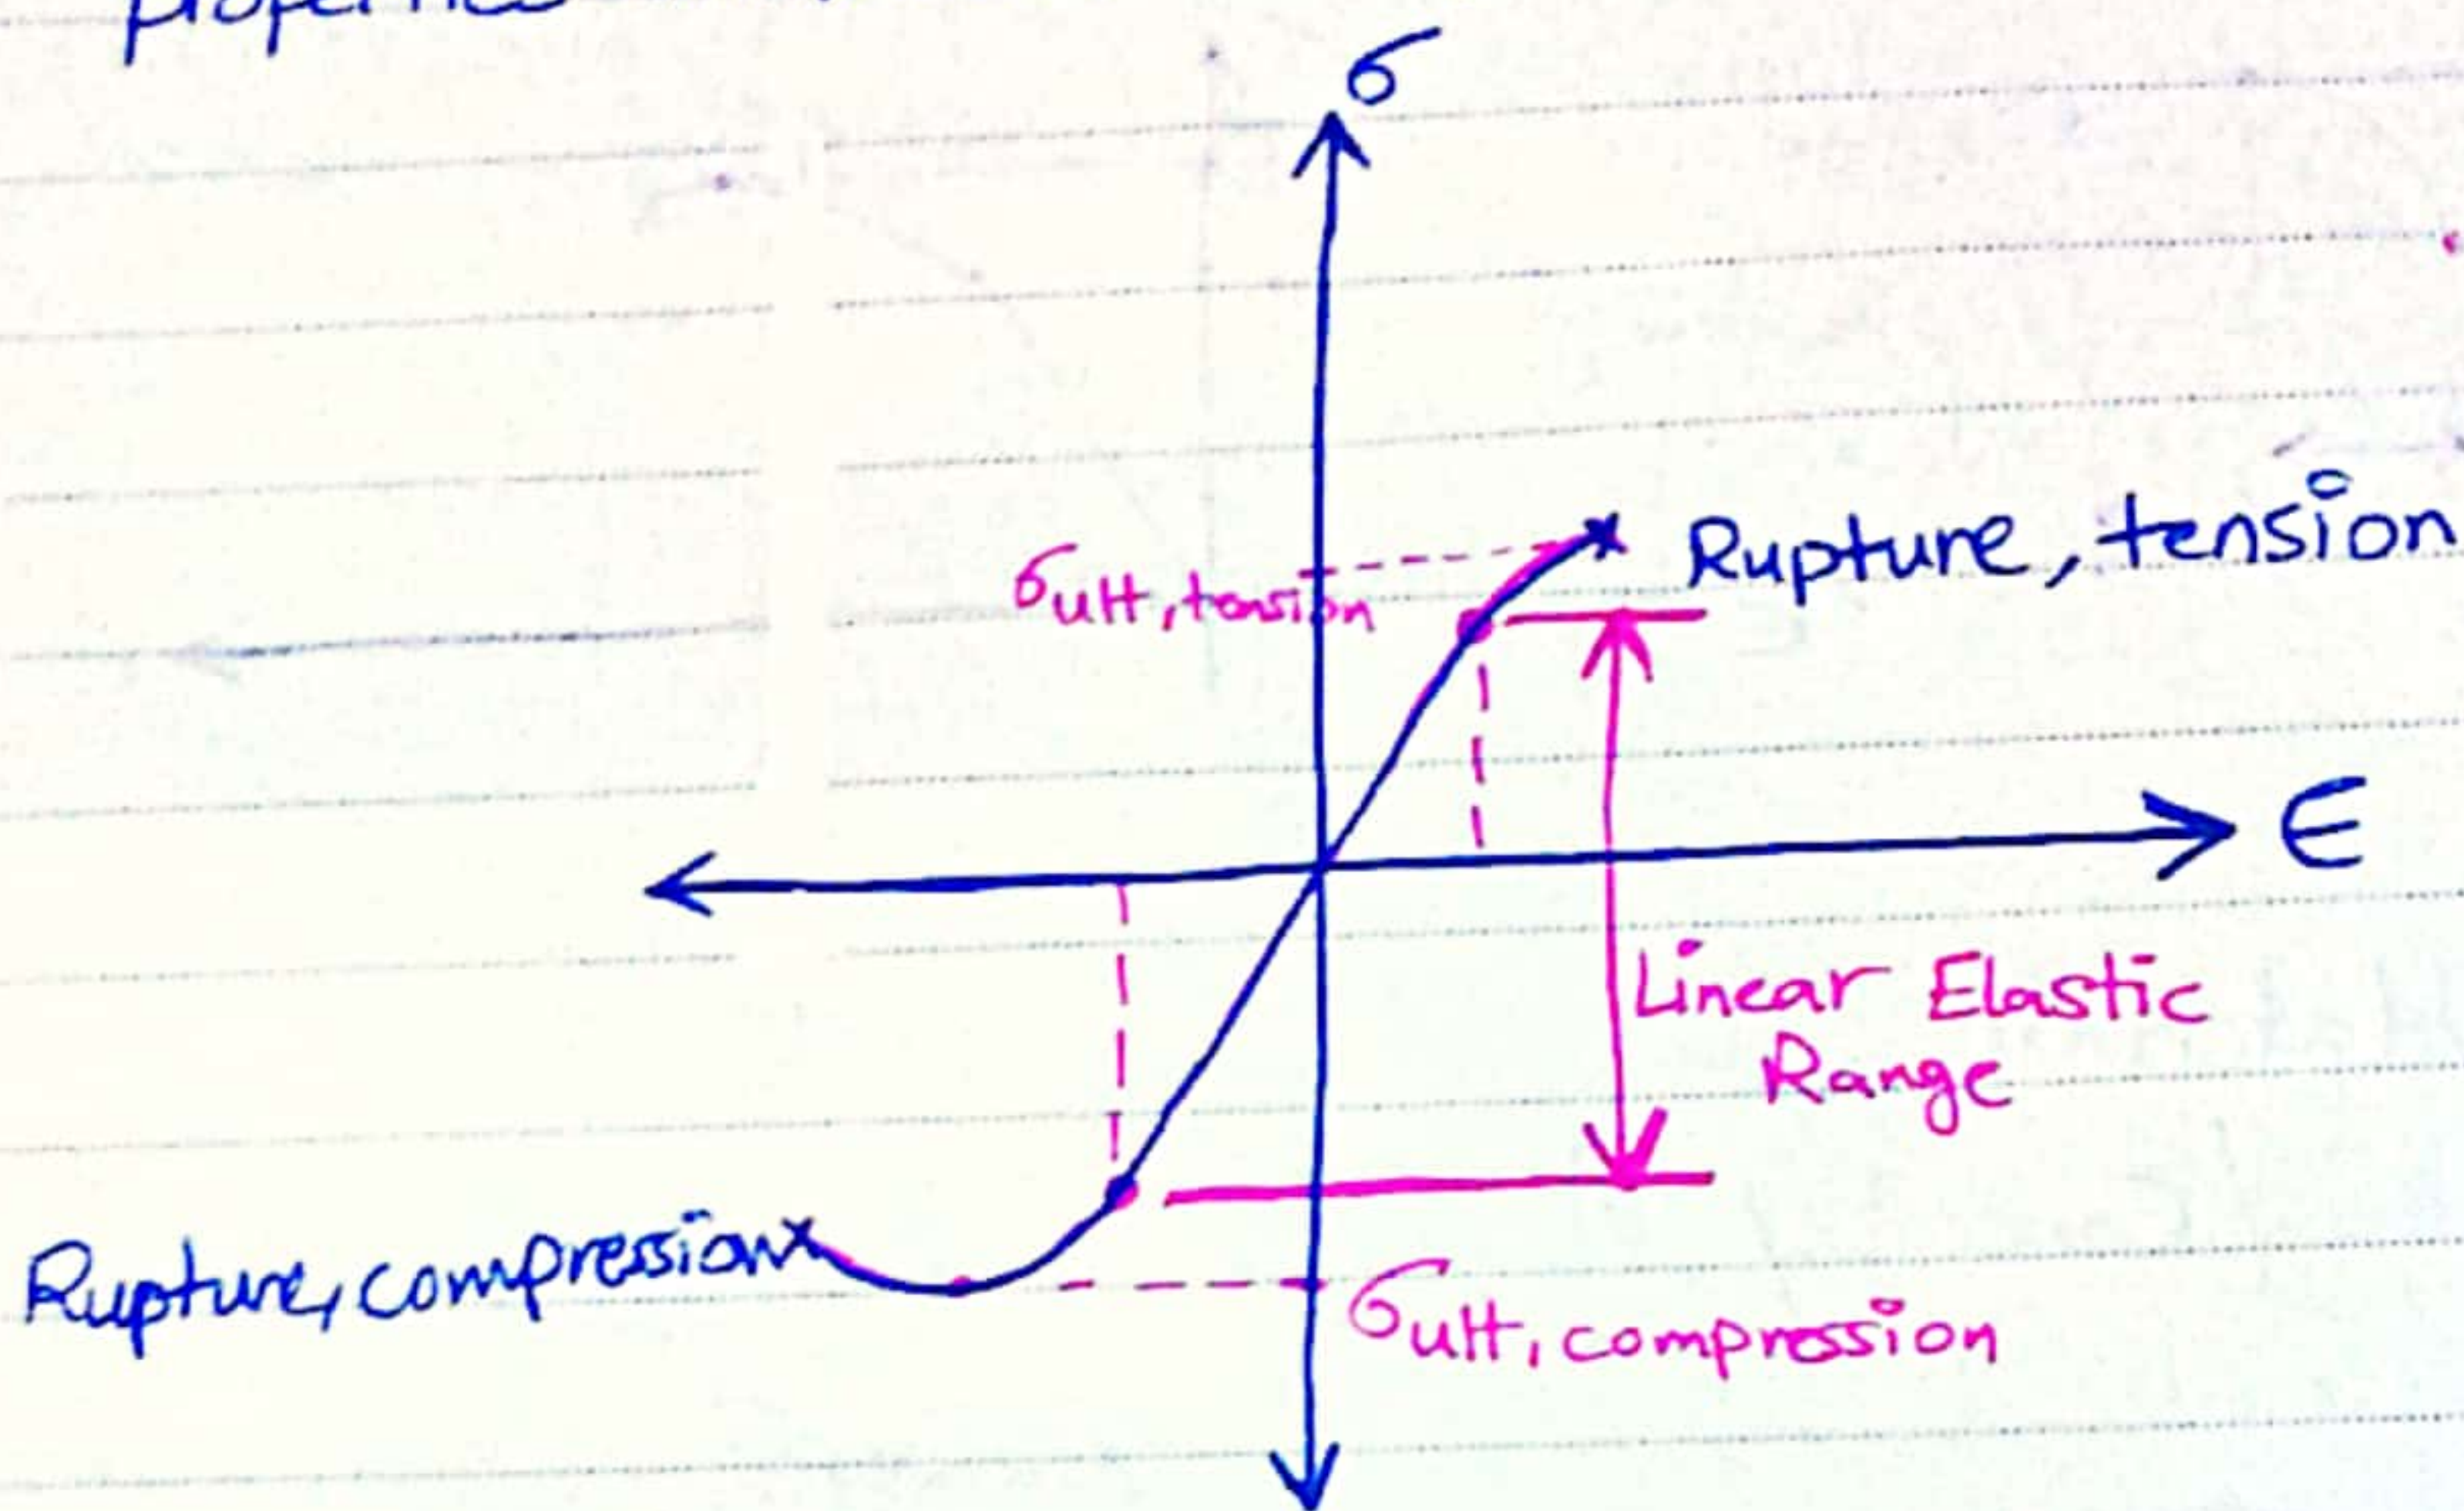 σ
Rupture, tension
σult, tension
ϵ
Linear Elastic
Range
Rupture, compression
σult, compression